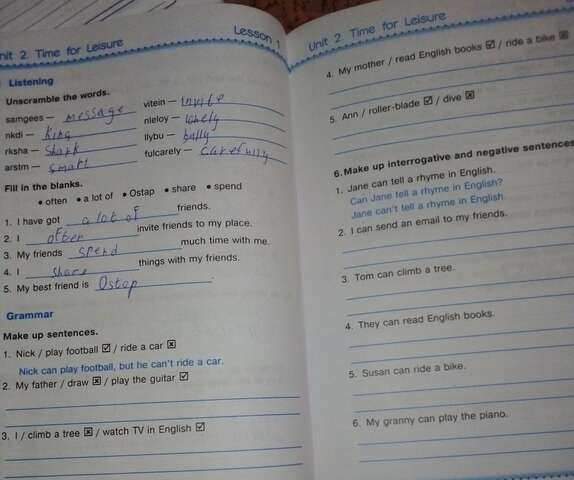 Unit 2. Time for Leisure
Lesson 1
Listening
Unscramble the words.
samgees — message
nkdi — King
rksha — Shark
arstm — smart
vitein — invite
nleloy — lonely
llybu — bully
fulcarely —
Fill in the blanks.
• often • a lot of • Ostap • share • spend
1. I have got a lot of friends.
2. I often invite friends to my place.
3. My friends spend much time with me.
4. I share things with my friends.
5. My best friend is Ostap.
Grammar
Make up sentences.
1. Nick / play football ☑ / ride a car ☒
Nick can play football, but he can't ride a car.
2. My father / draw ☒ / play the guitar ☑
3. I / climb a tree ☒ / watch TV in English ☑
Unit 2. Time for Leisure
4. My mother / read English books ☑ / ride a bike ☒
5. Ann / roller-blade ☑ / dive ☒
6. Make up interrogative and negative sentences
1. Jane can tell a rhyme in English.
Can Jane tell a rhyme in English?
Jane can't tell a rhyme in English.
2. I can send an email to my friends.
3. Tom can climb a tree.
4. They can read English books.
5. Susan can ride a bike.
6. My granny can play the piano.